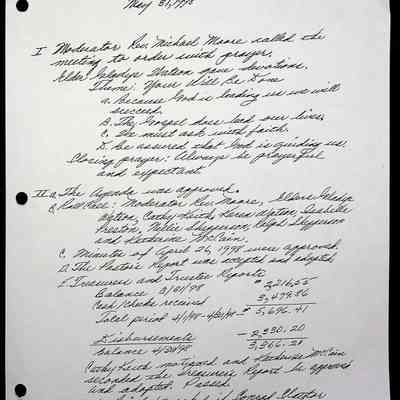 May 31, 1998
I Moderator Rev. Michael Moore called the
meeting to order with prayer.
Elder Gladys Watson gave devotions.
Theme: Your Will Be Done
a. Because God is leading us we will
succeed.
B. The Gospel does lead our lives.
C. We must ask with faith.
D. be assured that God is guiding us.
Closing prayer: Always be prayerful
and expectant.
II a. The Agenda was approved.
Roll Call: Moderator Rev Moore, Elders Gladys
Watson, Cathy Keith, Watson, Isabelle
Preston, Nellie Shepperson, Ralph Shepperson
and Katherine McCain.
C. Minutes of April 26, 1998 were approved
D. The Pastor's Report was accepted and adopted
E. Treasurers and Trustee Reports
Balance 3/31/98 $3,216.55
Cash/checks received 3,479.86
Total period 4/1/98-4/30/98 $5,696.41
Disbursements - 2,330.20
balance 4/30/98 3,366.21
Cathy Keith motioned and Katherine McCain
seconded the Treasurers Report be approved
and adopted. Passed.